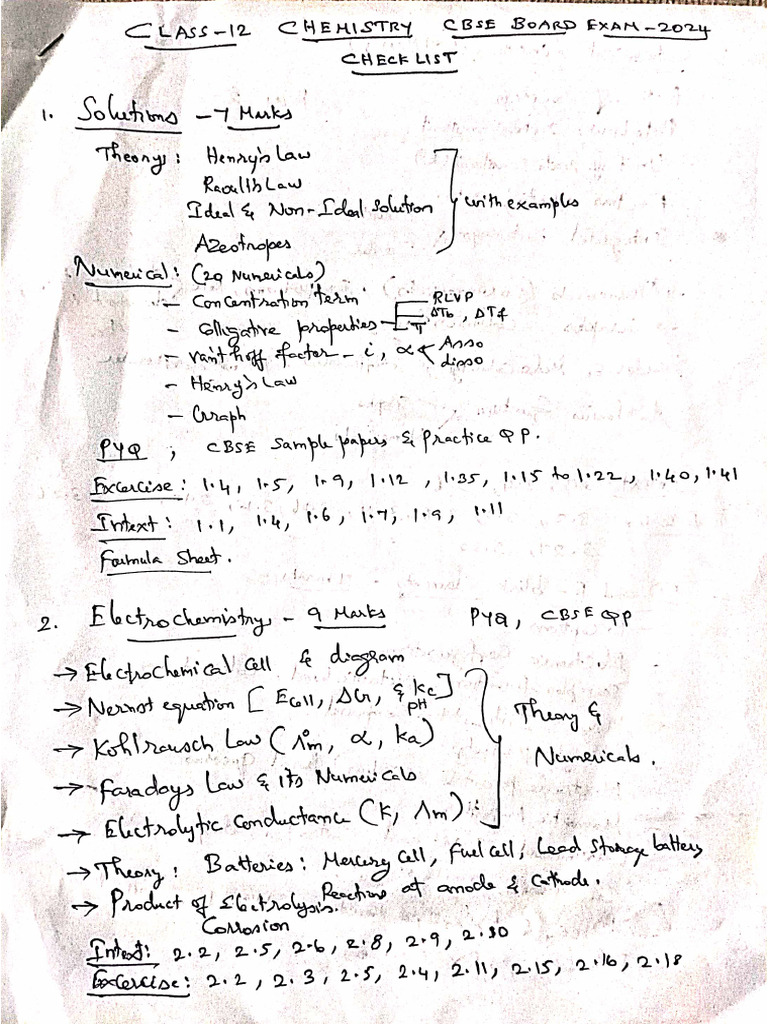 CLASS-12 CHEMISTRY CBSE BOARD EXAM-2024
CHECK LIST
1. Solutions - 7 Marks
Theory: Henry's Law
Raoult's Law
Ideal & Non-Ideal solution
with examples
Azeotropes
Numerical: (29 Numericals)
- Concentration term
- Colligative properties - RLVP
ΔTb, ΔTf
π
- van't hoff factor - i, α < Asso
disso
- Henry's Law
- Graph
PYQ ; CBSE Sample papers & Practice QP.
Excercise: 1.4, 1.5, 1.9, 1.12, 1.35, 1.15 to 1.22, 1.40, 1.41
Intext: 1.1, 1.4, 1.6, 1.7, 1.9, 1.11
Formula Sheet.
2. Electrochemistry - 9 Marks PYQ, CBSE QP
→ Electrochemical Cell & diagram
→ Nernst equation [Ecell, ΔG, & kc]
pH
Theory &
Numericals.
→ Kohlrausch Law (Λ°m, α, ka)
→ Faradays Law & its Numericals
→ Electrolytic Conductance (K, Λm):
→ Theory: Batteries: Mercury Cell, Fuel Cell, Lead Storage battery
Reactions at anode & Cathode.
→ Product of Electrolysis.
Corrosion
Intext: 2.2, 2.5, 2.6, 2.8, 2.9, 2.10
Excercise: 2.2, 2.3, 2.5, 2.4, 2.11, 2.15, 2.16, 2.18